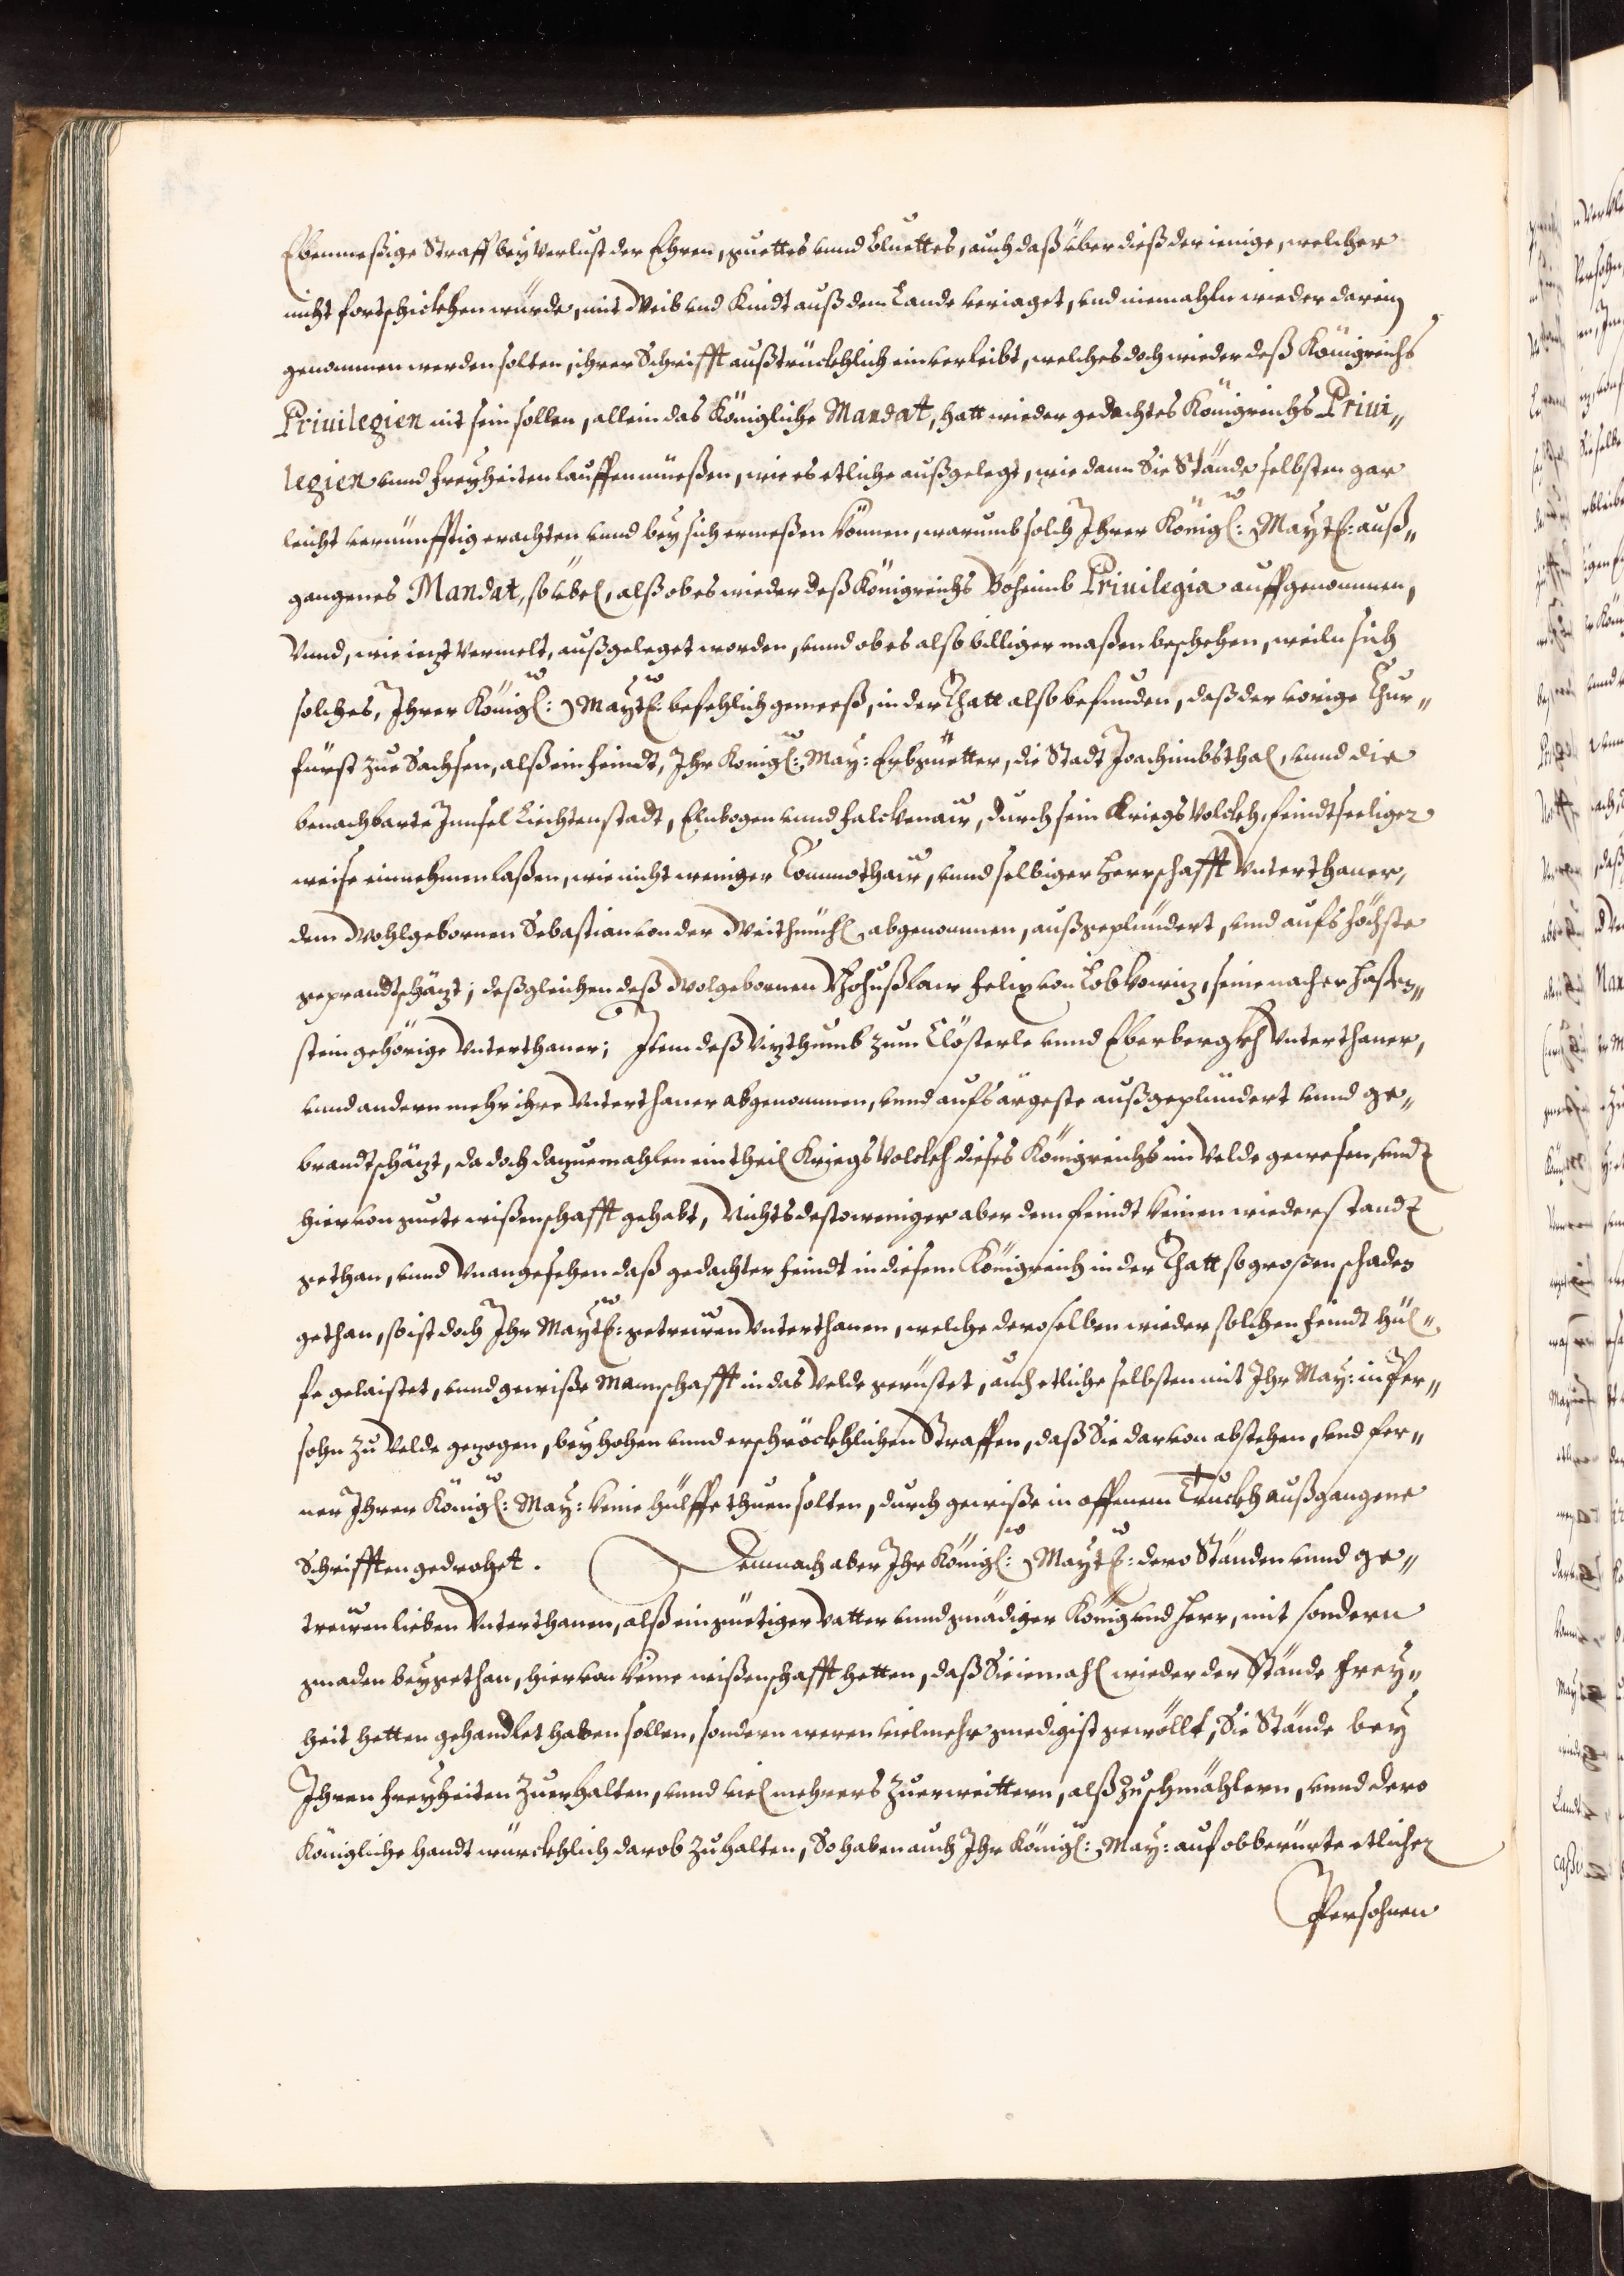 Ebenmeßige Straff bey Verlust der Ehren, guettes vnnd Bluettes, auch daß über dieß der ienige, welcher
nicht fortschickhen würde, mit Weib vnd Kindt auß dem Lande veriaget, vnd niemahln wieder darein
genommen werden solten, ihrer Schrifft außtrückhlich einverleibt, welches doch wieder deß Königreichs
Priuilegien nit sein sollen, allein das Königliche Mandat, hatt wieder gedachtes Königreichs Priui„
legien vnnd freyheiten lauffen müeßen, wie es etliche außgelegt, wie dann Sie Stände selbsten gar
leicht vernünfftig erachten vnnd bey sich ermeßen können, warumb solch Ihrer Königl: Maytt: auß„
gangenes Mandat, so übel, alß ob es wieder deß Königreichs Böheimb Priuilegia auffgenommen,
Vnnd, wie ietzt Vermelt, außgeleget worden, vnnd ob es also billiger maßen beschehen, weiln sich
solches, Ihrer Königl: Maytt: befehlich gemeeß, in der Thatt also befunden, daß der vorige Chur„
fürst zue Sachsen, alß ein feindt, Ihr Königl: May: Erbgüetter, die Stadt Joachimbsthal, vnnd die
benachbarte Innsel Liechtenstadt, Elnbogen vnnd Falckenaw, durch sein Kriegs Volckh, feindtseeliger
weise einnehmen laßen, wie nicht weniger Commothaw, vnnd selbiger Herrschafft Vnterthaner,
dem Wohlgebornen Sebastian von der Weithmühl abgenommen, außgeplündert, vnnd aufs höchste
geprandtschätzt; deßgleichen deß Wolgebornen Bohußlaw Felix von Lobkowitz, seine nacher Haßen„
stein gehörige Vnterthaner; Item deß Vizthumb zum Clösterle vnnd Eberbergkh Vnterthaner,
vnnd andern mehr ihre Vnterthaner abgenommen, vnnd aufs ärgeste außgeplündert vnnd ge„
brandtschätzt, da doch dazuemahlen ein theil Kriegs Volckh dieses Königreichs im Velde gewesen, vndt
hiervon guete wißenschafft gehabt, Nichts desto weniger aber dem feindt keinen wiederstandt
gethan, vnnd Vnangesehen daß gedachter feindt in diesem Königreich in der Thatt so großen schaden
gethan, so ist doch Ihr Maytt: getrewen Vnterthanen, welche deroselben wieder solchen feindt hül„
fe gelaistet, vnnd gewiße Mannschafft in das Velde gerüstet, auch etliche selbsten mit Ihr May: in Per„
sohn zu Velde gezogen, bey hohen vnnd erschröckhlichen Straffen, daß Sie darvon abstehen, vnd fer„
ner Ihrer Königl: May: keine hülffe thuen solten, durch gewiße in offenem Truckh außgangene
Schrifften gedrohet. Demnach aber Ihr Königl: Maytt: dero Ständen vnnd ge„
trewen lieben Vnterthanen, alß ein güetiger Vatter vnnd gnädiger König vnd Herr, mit sondern
gnaden beygethan, hiervon keine wißenschafft hetten, daß Sie iemahl wieder der Stände frey„
heit hetten gehandlet haben sollen, sondern weren vielmehr gnedigist gewöllt, Sie Stände bey
Ihren freyheiten Zuerhalten, vnnd viel mehrers Zuerweittern, alß Zu schmählern, vnnd dero
Königliche handt würckhlich darob Zu halten, So haben auch Ihr Königl: May: auf obberürte etlicher
Persohnen